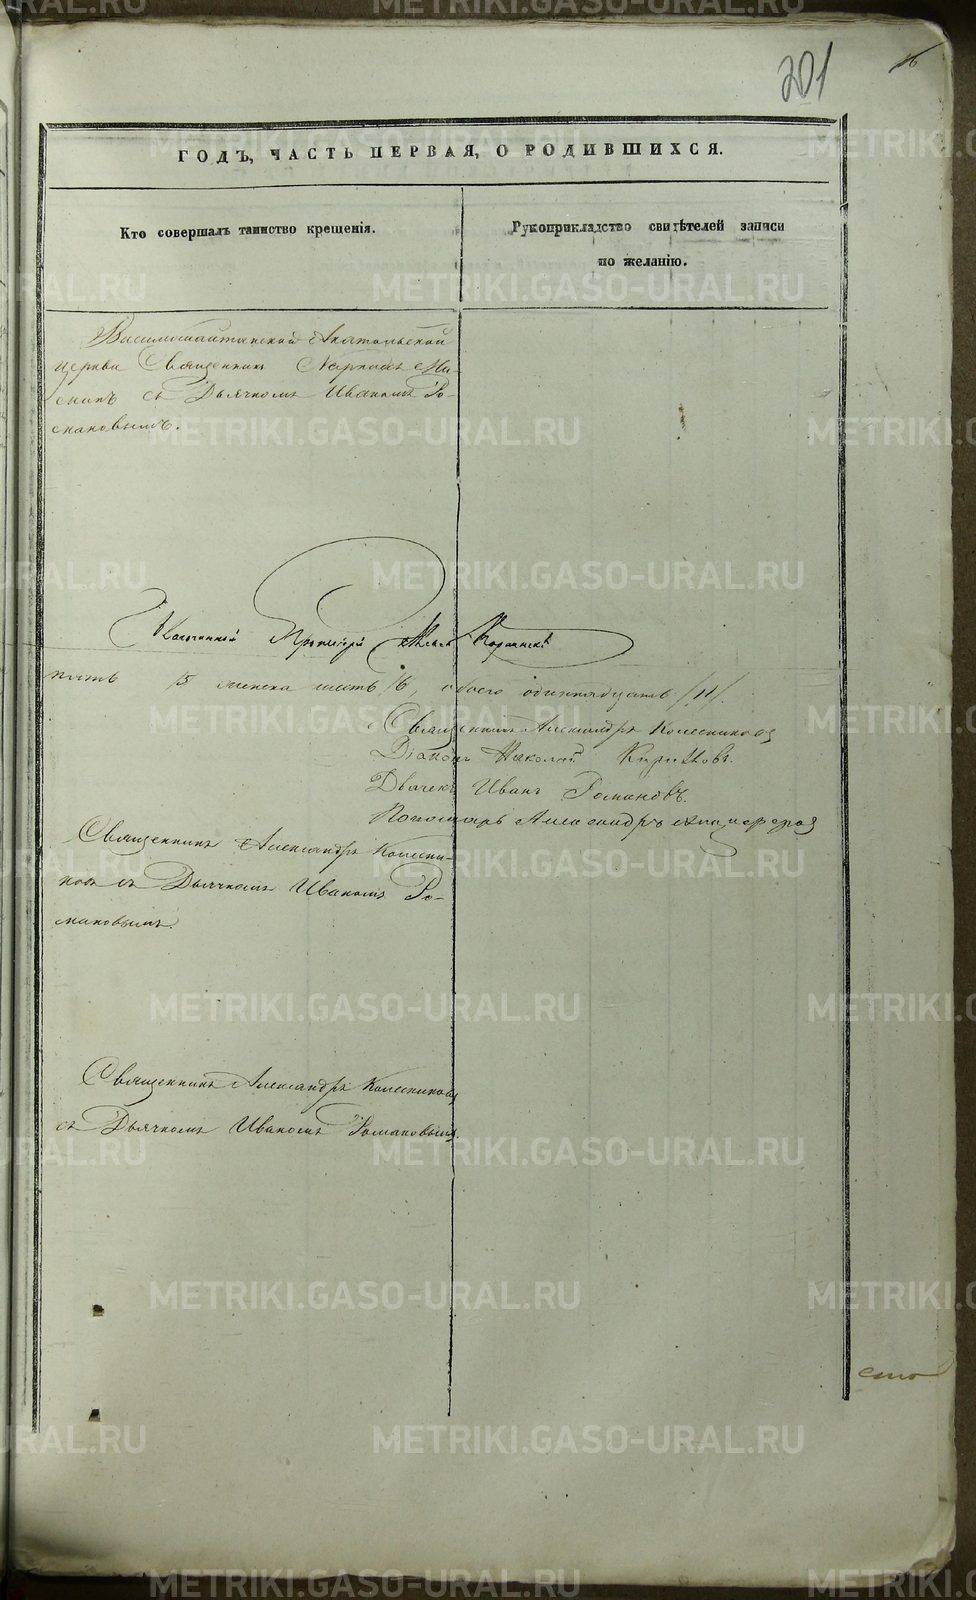 201
16
ГОДЪ, ЧАСТЬ ПЕРВАЯ, О РОДИВШИХСЯ.
Кто совершалъ таинство крещенія.
Рукоприкладство свидѣтелей записи
по желанію.
Василошайтанской Анатольской
церкви Священникъ
съ Дьячкомъ Иваномъ Ро-
мановымъ.
Протоіерей
пять /5 женска шесть /6, обоего одиннадцать /11/.
Священникъ Александръ Колесниковъ
Діаконъ Николай
Дьячекъ Иванъ Романовъ.
Пономарь Александръ
Священникъ Александръ Колесни-
ковъ съ Дьячкомъ Иваномъ Ро-
мановымъ.
Священникъ Александръ Колесниковъ
съ Дьячкомъ Иваномъ Романовымъ.
сто
METRIKI.GASO-URAL.RU